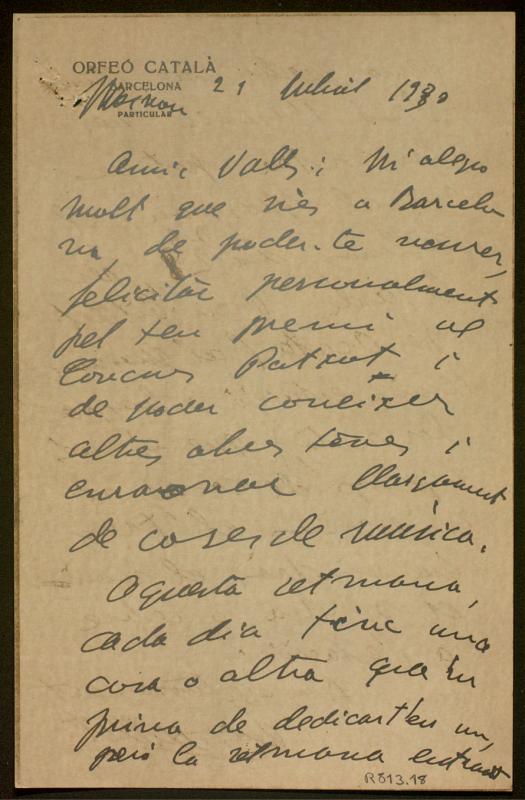 ORFEÓ CATALÀ
BARCELONA
PARTICULAR
21 Juliol 1930
Amic Valls: M'alegro
molt que siès a Barcelo
na, de poder-te veurer,
felicitàr personalment
pel teu premi al
Concurs Patxot i
de poder coneixer
altres obres teves i
enraonar llargament
de coses de música.
Aquesta setmana,
cada dia tinc una
cosa o altra que'm
priva de dedicart'en un,
però la setmana entrant
R813.18